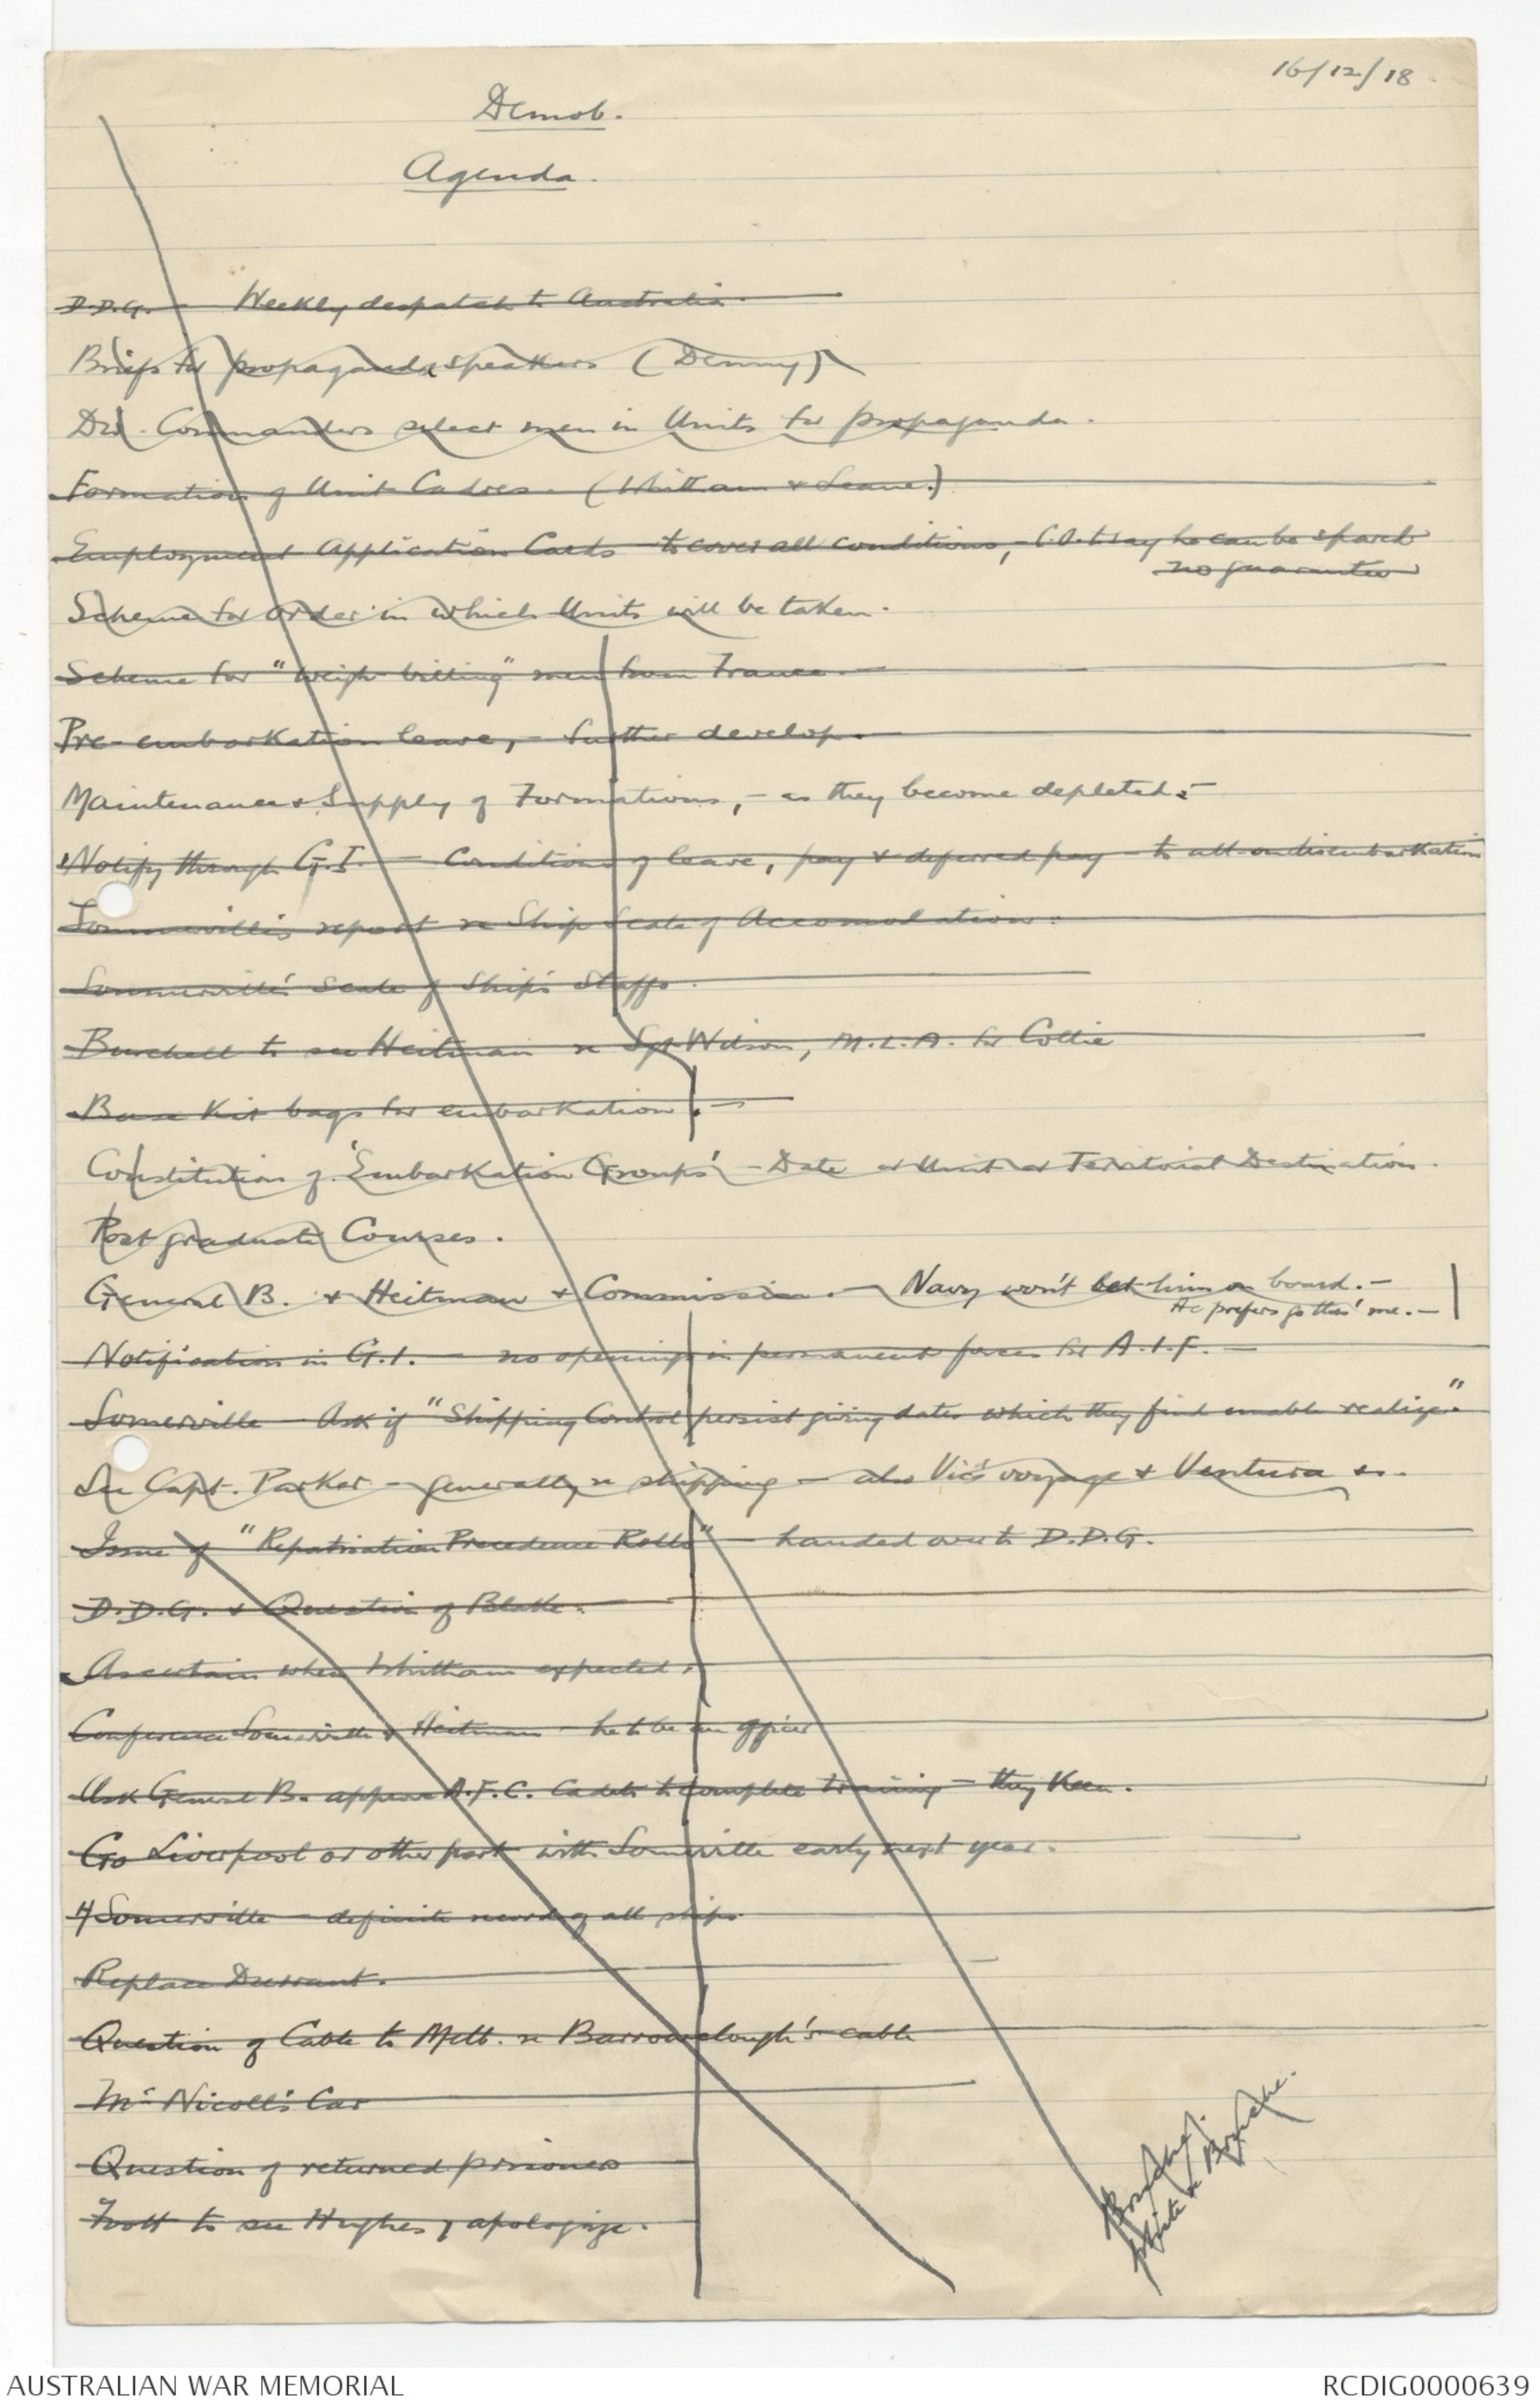 16/12/18.
Demob.
Agenda.
D.D.G. - Weekly despatch to Australia.
Briefs for propaganda speakers (Denny)
Div. Commanders select men in Units for propaganda.
Formation of Unit Cadres. (Whitham & Leane.)
Employment Application Cards to cover all conditions, - C.O. to say he can be spared
no guarantee
Scheme for order in which Units will be taken.
Scheme for "weigh-billing" men from France.
Pre-embarkation leave, - further develop.
Maintenance & Supply of Formations, - as they become depleted. -
Notify through G.I. - Conditions of leave, pay & deferred pay - to all on disembarkation
Sommerville's report re Ship Scale of Accomodation.
Sommerville's Scale of Ship's Staffs.
Burchell to see Heitman re Sgt Wilson, M.L.A. for Collie
Base Kit bags for embarkation. -
Constitution of 'Embarkation Groups' - Date & Unit & Territorial Destination.
Post graduate Courses.
General B. & Heitman & Commission. - Navy won't let him on board. -
He prefers go thro' me. -
Notification in G.I. - no openings in permanent forces for A.I.F. -
Somerville - Ask if "Shipping Control persist giving dates which they find unable realize."
See Capt. Parker - generally re shipping - also Vic's voyage & Ventura &.
Issue of "Repatriation Precedence Rolls" - handed over to D.D.G.
D.D.G. & Question of Blake.
Ascertain when Whitham expected.
Conference Somerville & Heitman - he to be an officer
Ask General B. approve A.F.C. Cadets to complete training - they Keen.
Go Liverpool or other port with Somerville early next year.
Somerville - definite record of all ships.
Replace Durrant.
Question of Cable to Melb. re Barraclough's cable
McNicoll's Car
Question of returned prisoners
Foott to see Hughes & apologize.